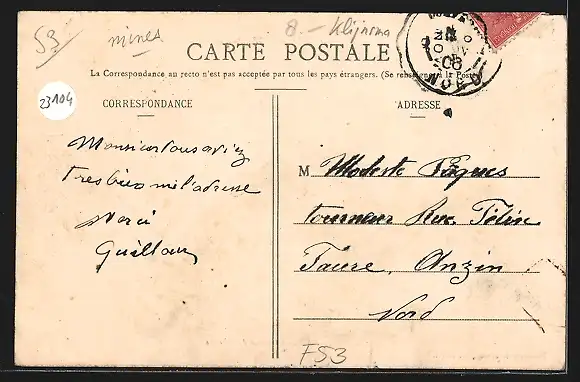 53
mines
8. - Klijnsma
CARTE POSTALE
La Correspondance au recto n'est pas acceptée par tous les pays étrangers. (Se renseigner à la Poste)
CORRESPONDANCE
ADRESSE
23104
08
NORD
Monsieur vous aviez
tres bien mis l'adresse
Merci
M Modeste Pâques
tourneur Rue Félix
Faure, Anzin
Nord
F53